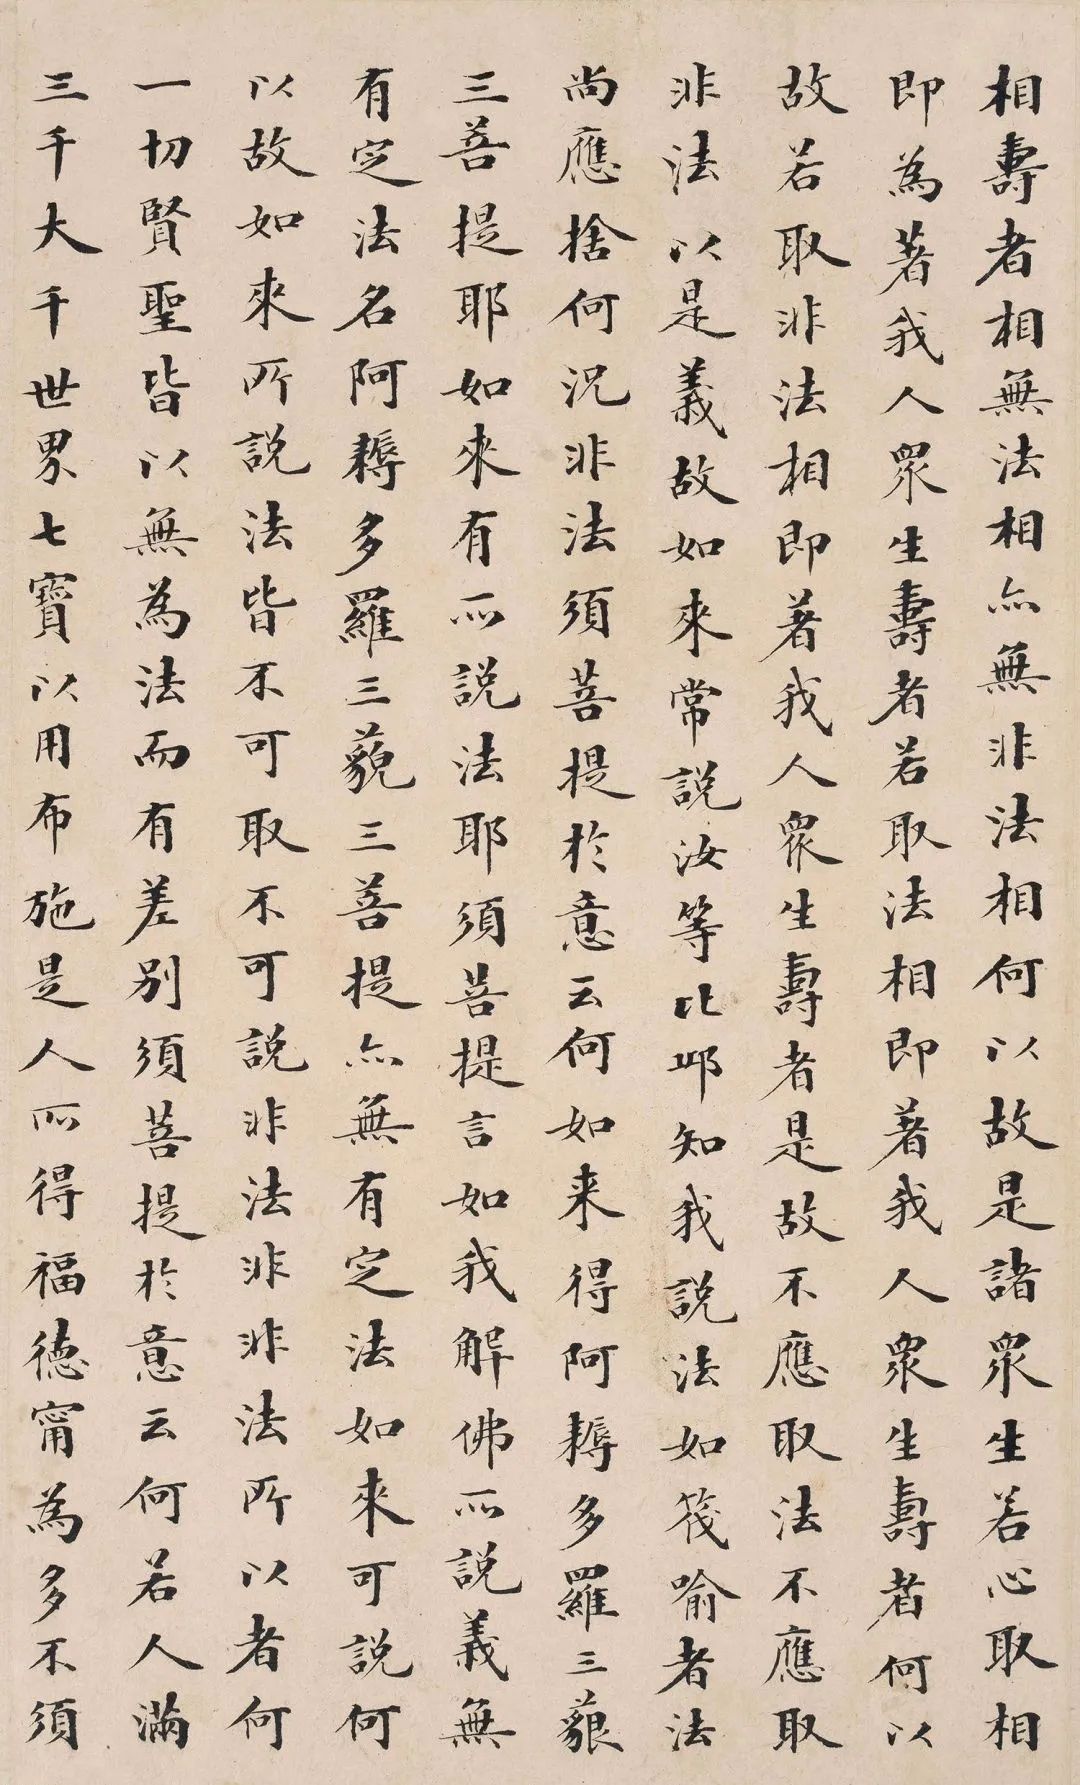 相壽者相無法相亦無非法相何以故是諸衆生若心取相
即為著我人衆生壽者若取法相即著我人衆生壽者何以
故若取非法相即著我人衆生壽者是故不應取法不應取
非法以是義故如來常說汝等比丘知我說法如筏喻者法
尚應捨何況非法須菩提於意云何如来得阿耨多羅三藐
三菩提耶如來有所說法耶須菩提言如我解佛所說義無
有定法名阿耨多羅三藐三菩提亦無有定法如來可說何
以故如來所說法皆不可取不可說非法非非法所以者何
一切賢聖皆以無為法而有差別須菩提於意云何若人滿
三千大千世界七寶以用布施是人所得福德甯為多不須